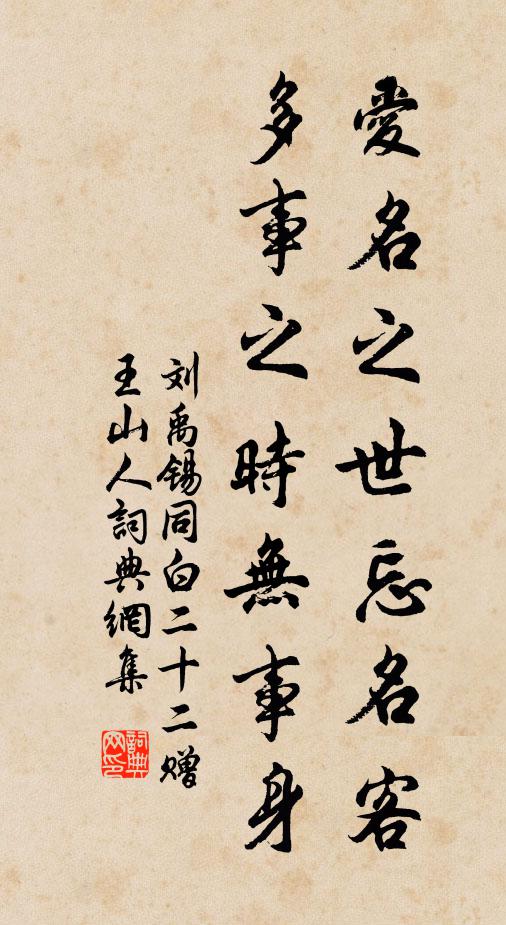 愛名之世忘名客
多事之時無事身
刘禹锡同白二十二赠
王山人詞典網集
詞典
网印